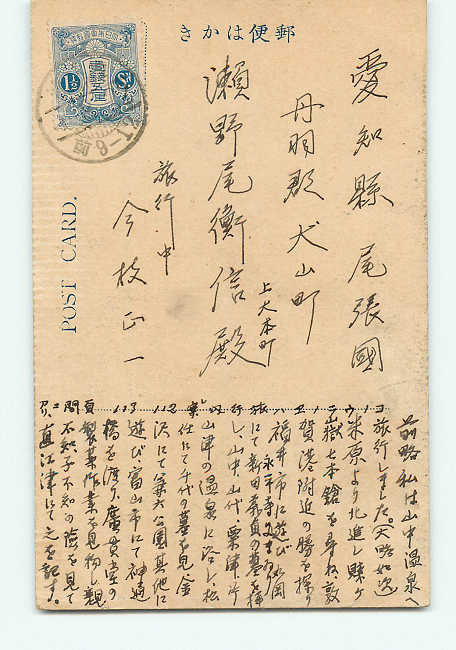 郵便はかき
POST CARD.
1½ Sⁿ
愛知縣尾張國
丹羽郡犬山町
上大本町
瀬野尾衡信殿
旅行中
今枝正一
前略私は山中温泉へ
旅行しました。大略如次
米原より北進し賤ヶ
嶽七本鎗を尋ね敦
賀港附近の勝を探り
福井市に遊び
永平寺
旅にて新田義貞の墓を
行し、山中山代粟津
山津の温泉に浴し、松
任にて千代の墓を見金
沢にて兼六公園其他に
遊び富山市にて神通
橋を渡り廣貫堂の
製薬作業を見物し親
不知子不知の險を見て
直江津にて之を記す。